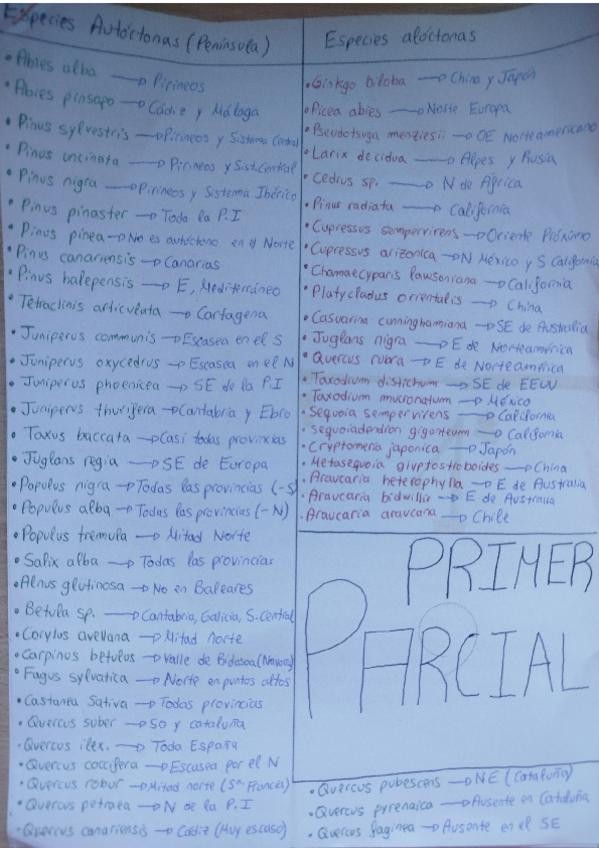 Especies Autóctonas (Península)
• Abies alba → Pirineos
• Abies pinsapo → Cádiz y Málaga
• Pinus sylvestris → Pirineos y Sistema Central
• Pinus uncinata → Pirineos y Sist.Central
• Pinus nigra → Pirineos y Sistema Ibérico
• Pinus pinaster → Toda la P.I
• Pinus pinea → No es autóctono en el Norte
• Pinus canariensis → Canarias
• Pinus halepensis → E, Mediterráneo
• Tetraclinis articulata → Cartagena
• Juniperus communis → Escasea en el S
• Juniperus oxycedrus → Escasea en el N
• Juniperus phoenicea → SE de la P.I
• Juniperus thurifera → Cantabria y Ebro
• Taxus baccata → Casi todas provincias
• Juglans regia → SE de Europa
• Populus nigra → Todas las provincias (-S)
• Populus alba → Todas las provincias (-N)
• Populus tremula → Mitad Norte
• Salix alba → Todas las provincias
• Alnus glutinosa → No en Baleares
• Betula sp. → Cantabria, Galicia, S.Central
• Corylus avellana → Mitad norte
• Carpinus betulus → Valle de Bidasoa (Navarra)
• Fagus sylvatica → Norte en puntos altos
• Castanea Sativa → Todas provincias
• Quercus suber → SO y cataluña
• Quercus ilex. → Toda España
• Quercus coccifera → Escasea por el N
• Quercus robur → Mitad norte
• Quercus petraea → N de la P.I
• Quercus canariensis → Cádiz (Muy escaso)
Especies alóctonas
• Ginkgo biloba → China y Japón
• Picea abies → Norte Europa
• Pseudotsuga menziesii → OE Norteamericano
• Larix decidua → Alpes y Rusia
• Cedrus sp. → N de África
• Pinus radiata → California
• Cupressus sempervirens → Oriente Próximo
• Cupressus arizonica → N México y S California
• Chamaecyparis lawsoniana → California
• Platycladus orientalis → China
• Casuarina cunninghamiana → SE de Australia
• Juglans nigra → E de Norteamérica
• Quercus rubra → E de Norteamérica
• Taxodium distichum → SE de EEUU
• Taxodium mucronatum → México
• Sequoia sempervirens → California
• Sequoiadendron giganteum → California
• Cryptomeria japonica → Japón
• Metasequoia glyptostroboides → China
• Araucaria heterophylla → E de Australia
• Araucaria bidwillii → E de Australia
• Araucaria araucana → Chile
PRIMER
PARCIAL
• Quercus pubescens → NE (Cataluña)
• Quercus pyrenaica → Ausente en Cataluña
• Quercus faginea → Ausente en el SE